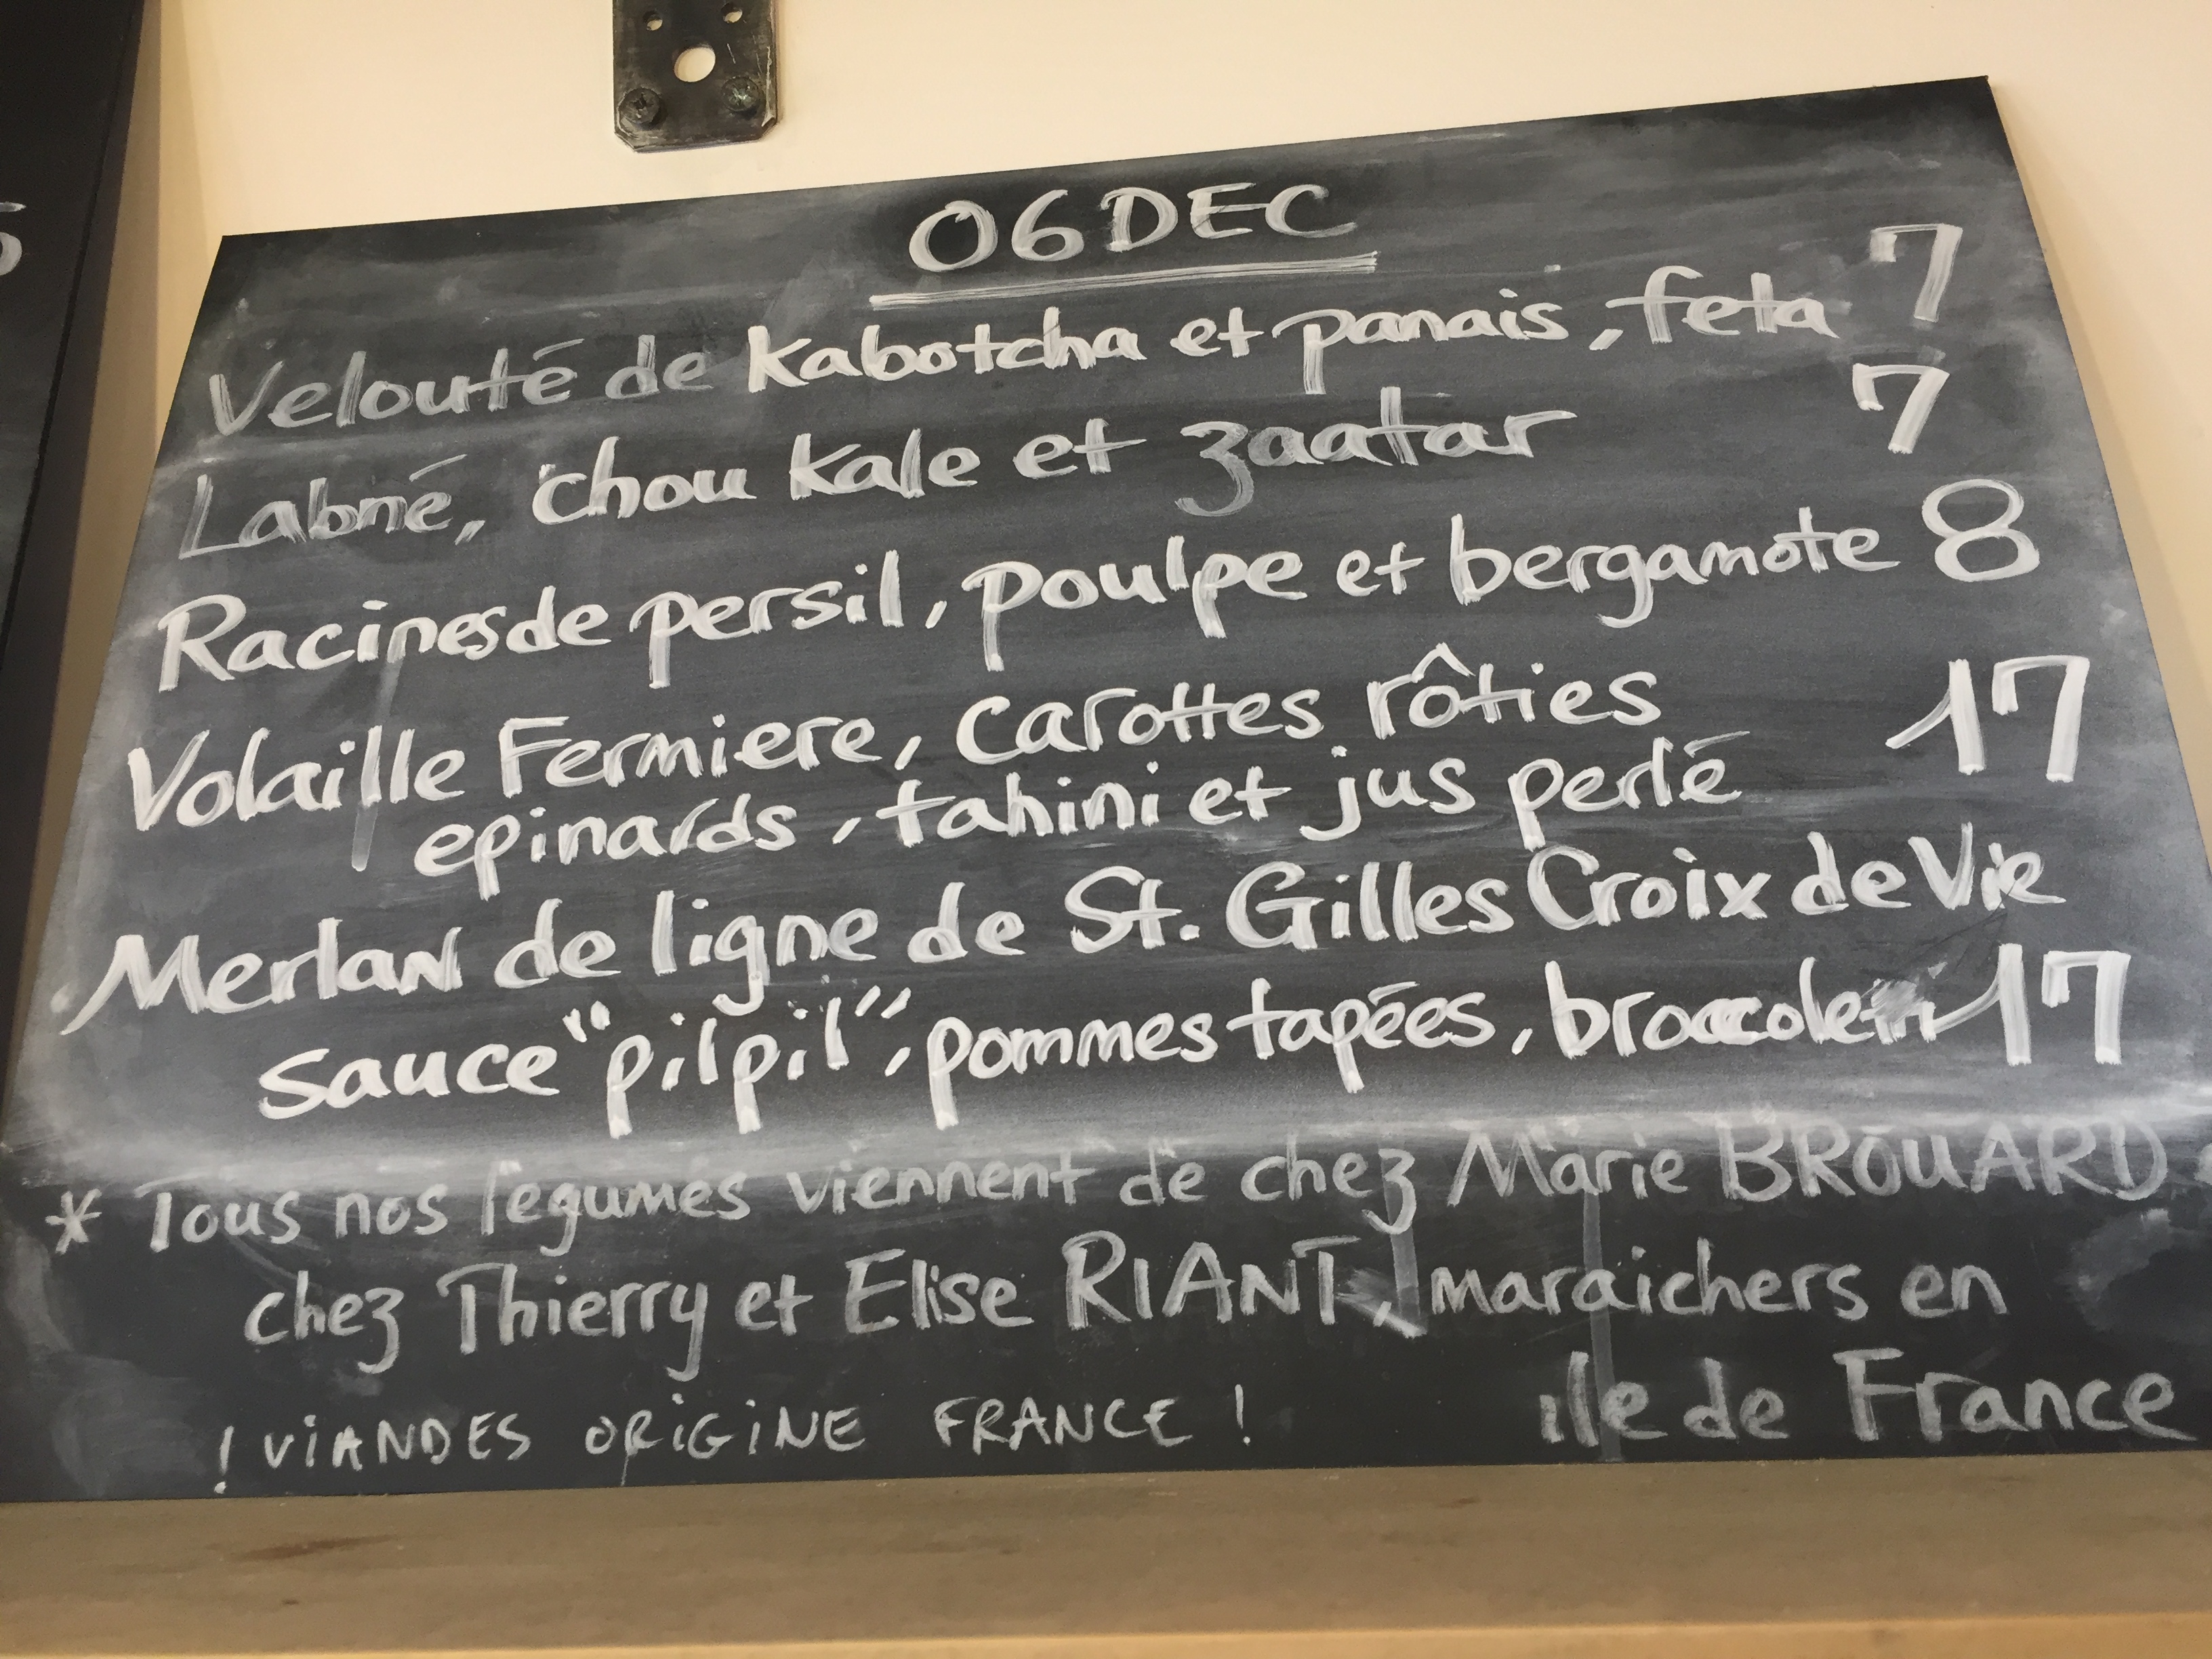 06 DEC
Velouté de Kabotcha et panais, feta 7
Labné, chou Kale et zaatar 7
Racines de persil, poulpe et bergamote 8
Volaille Fermiere, carottes rôties 17
epinards, tahini et jus perlé
Merlan de ligne de St. Gilles Croix de Vie
sauce "pilpil", pommes tapées, 17
* Tous nos légumes viennent de chez Marie BROUARD
chez Thierry et Elise RIANT, maraichers en
ile de France
! VIANDES ORIGINE FRANCE !